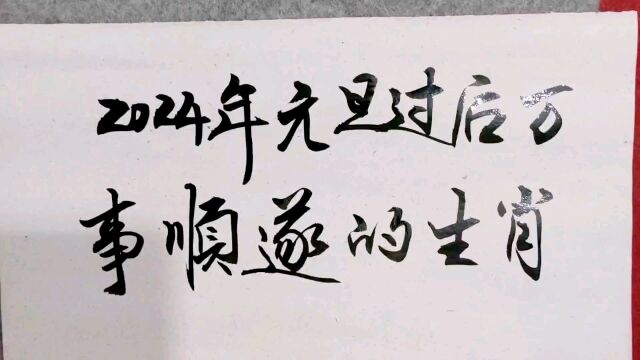 2024年元旦过后万
事順遂的生肖